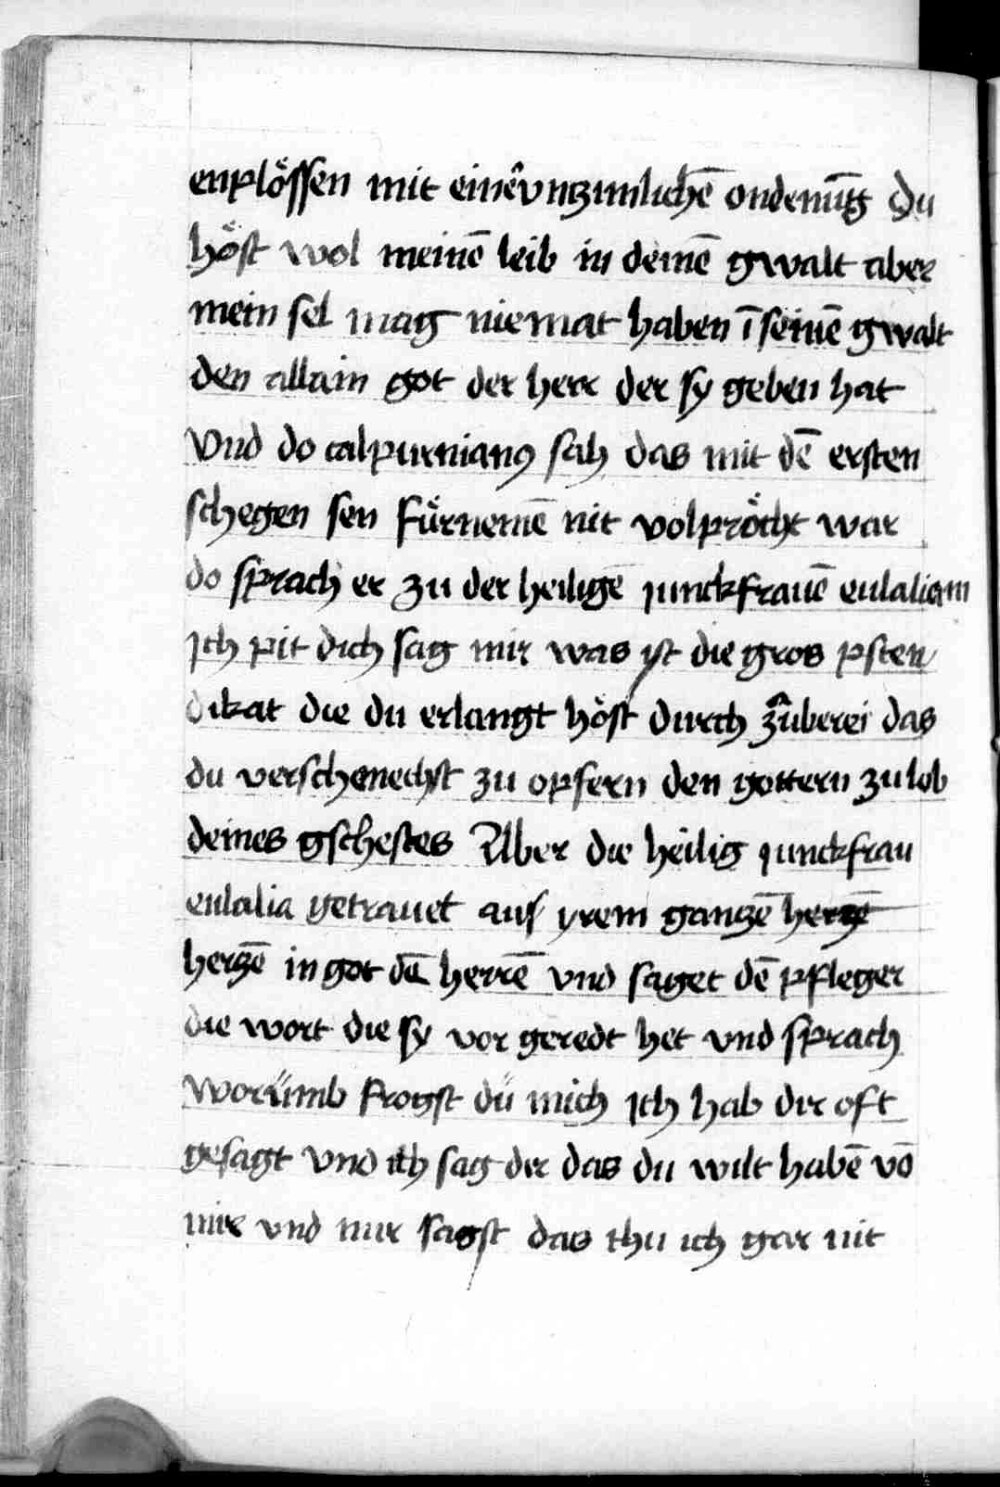 enplössen mit einē vnzimlichē ondemūg Du
höst wol meinē leib in deinē gwalt aber
mein sel mag niemat haben ī seinē gwalt
den allain got der herr der sy geben hat
Vnd do calpurnianꝰ sach das mit dē ersten
schegen sen fürnemē nit volpröcht war
do sprach er zu der heiligē junckfrauē eulaliam
Ich pit dich sag mir was yst die gros psten
dikat die du erlangt höst durch zauberei das
du verschmechst zu opfern den gottern zu lob
deines gschestes Aber die heilig junckfrau
eulalia getrauet aus yrem ganzē herzē
herzē in got dē herrē vnd saget dē pfleger
die wort die sy vor geredt het vnd sprach
worümb frogst dü mich Ich hab dir oft
gesagt vnd ich sag dir das du wilt habē vō
mir vnd mir sagst das thu ich gar nit